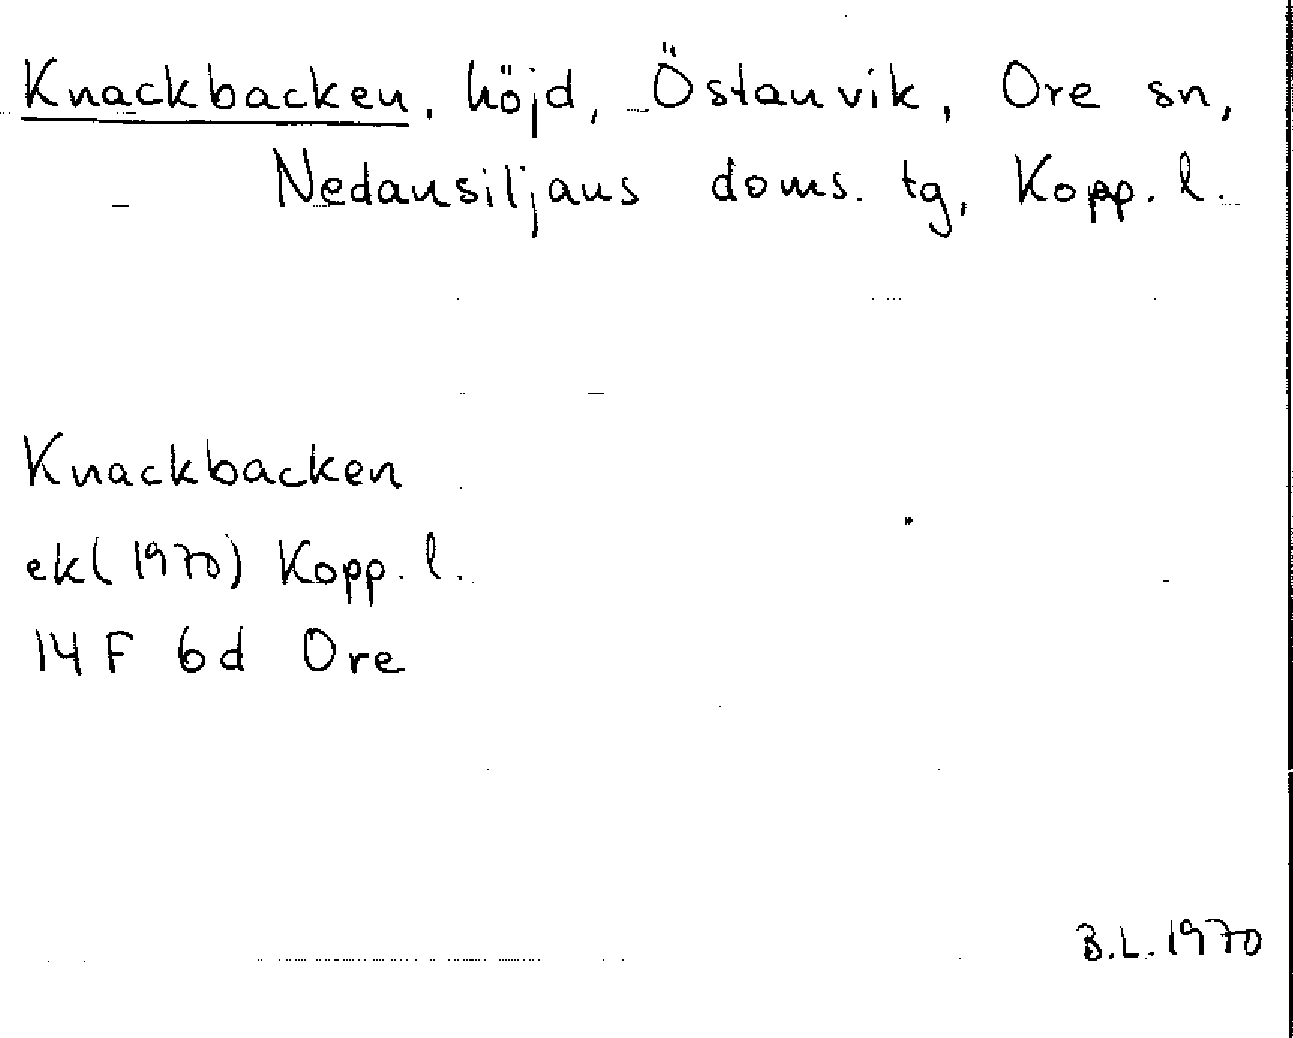 Knackbacken, höjd, Östanvik, Ore sn,
Nedansiljans doms. tg, Kopp. l.
Knackbacken
ek(1970) Kopp. l.
14 F 6d Ore
B.L. 1970